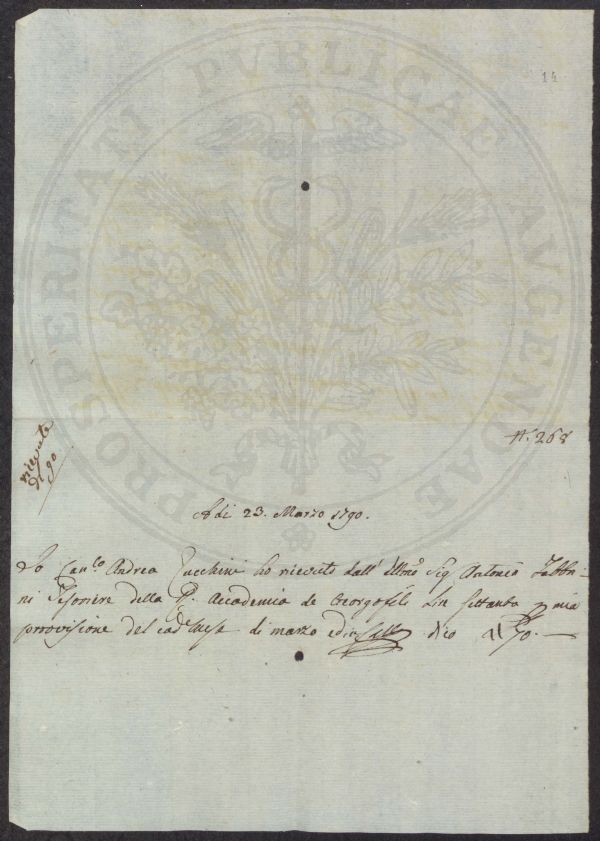 14
PROSPERITATI PUBLICAE AVGENDAE
N.° 268
ricevute
di 90
Adi 23. Marzo 1790.
Io Can.co Andrea Zucchini ho ricevuto dall' Illmo Sig Antonio Fabbri-
ni Tesoriere della R. Accademia de Georgofili Lire settanta p mia
provvisione del cad.e mese di marzo dico 70.—